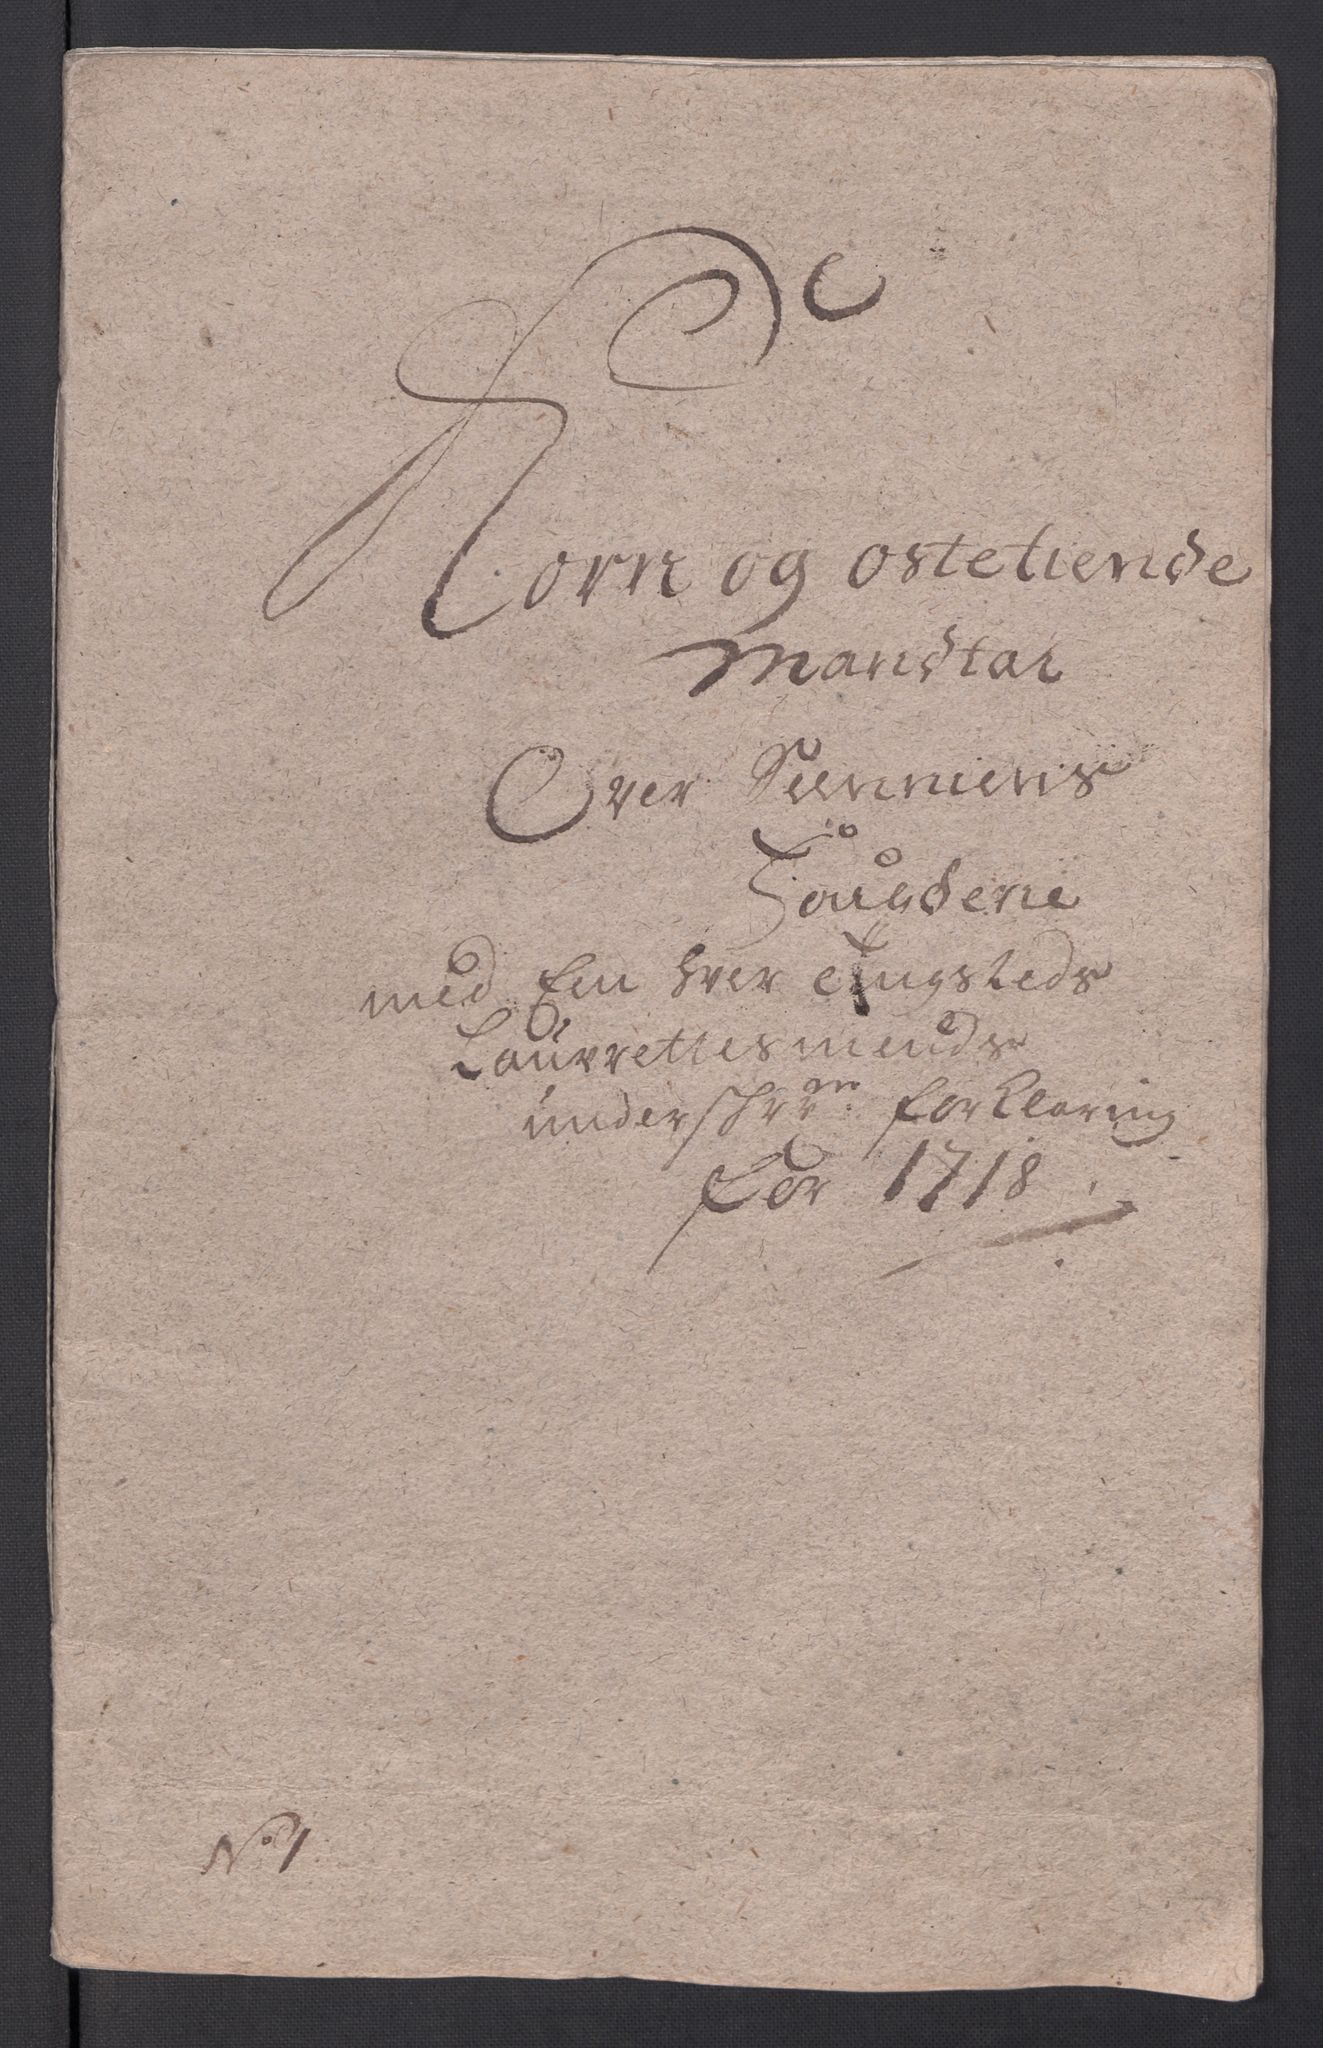 Korn og ostetiende
Mandtal
Over Sunniens
Fougderie
med En hver tingsteds
Laurrettesmends
underschrefne forklaring
for 1718
No 1